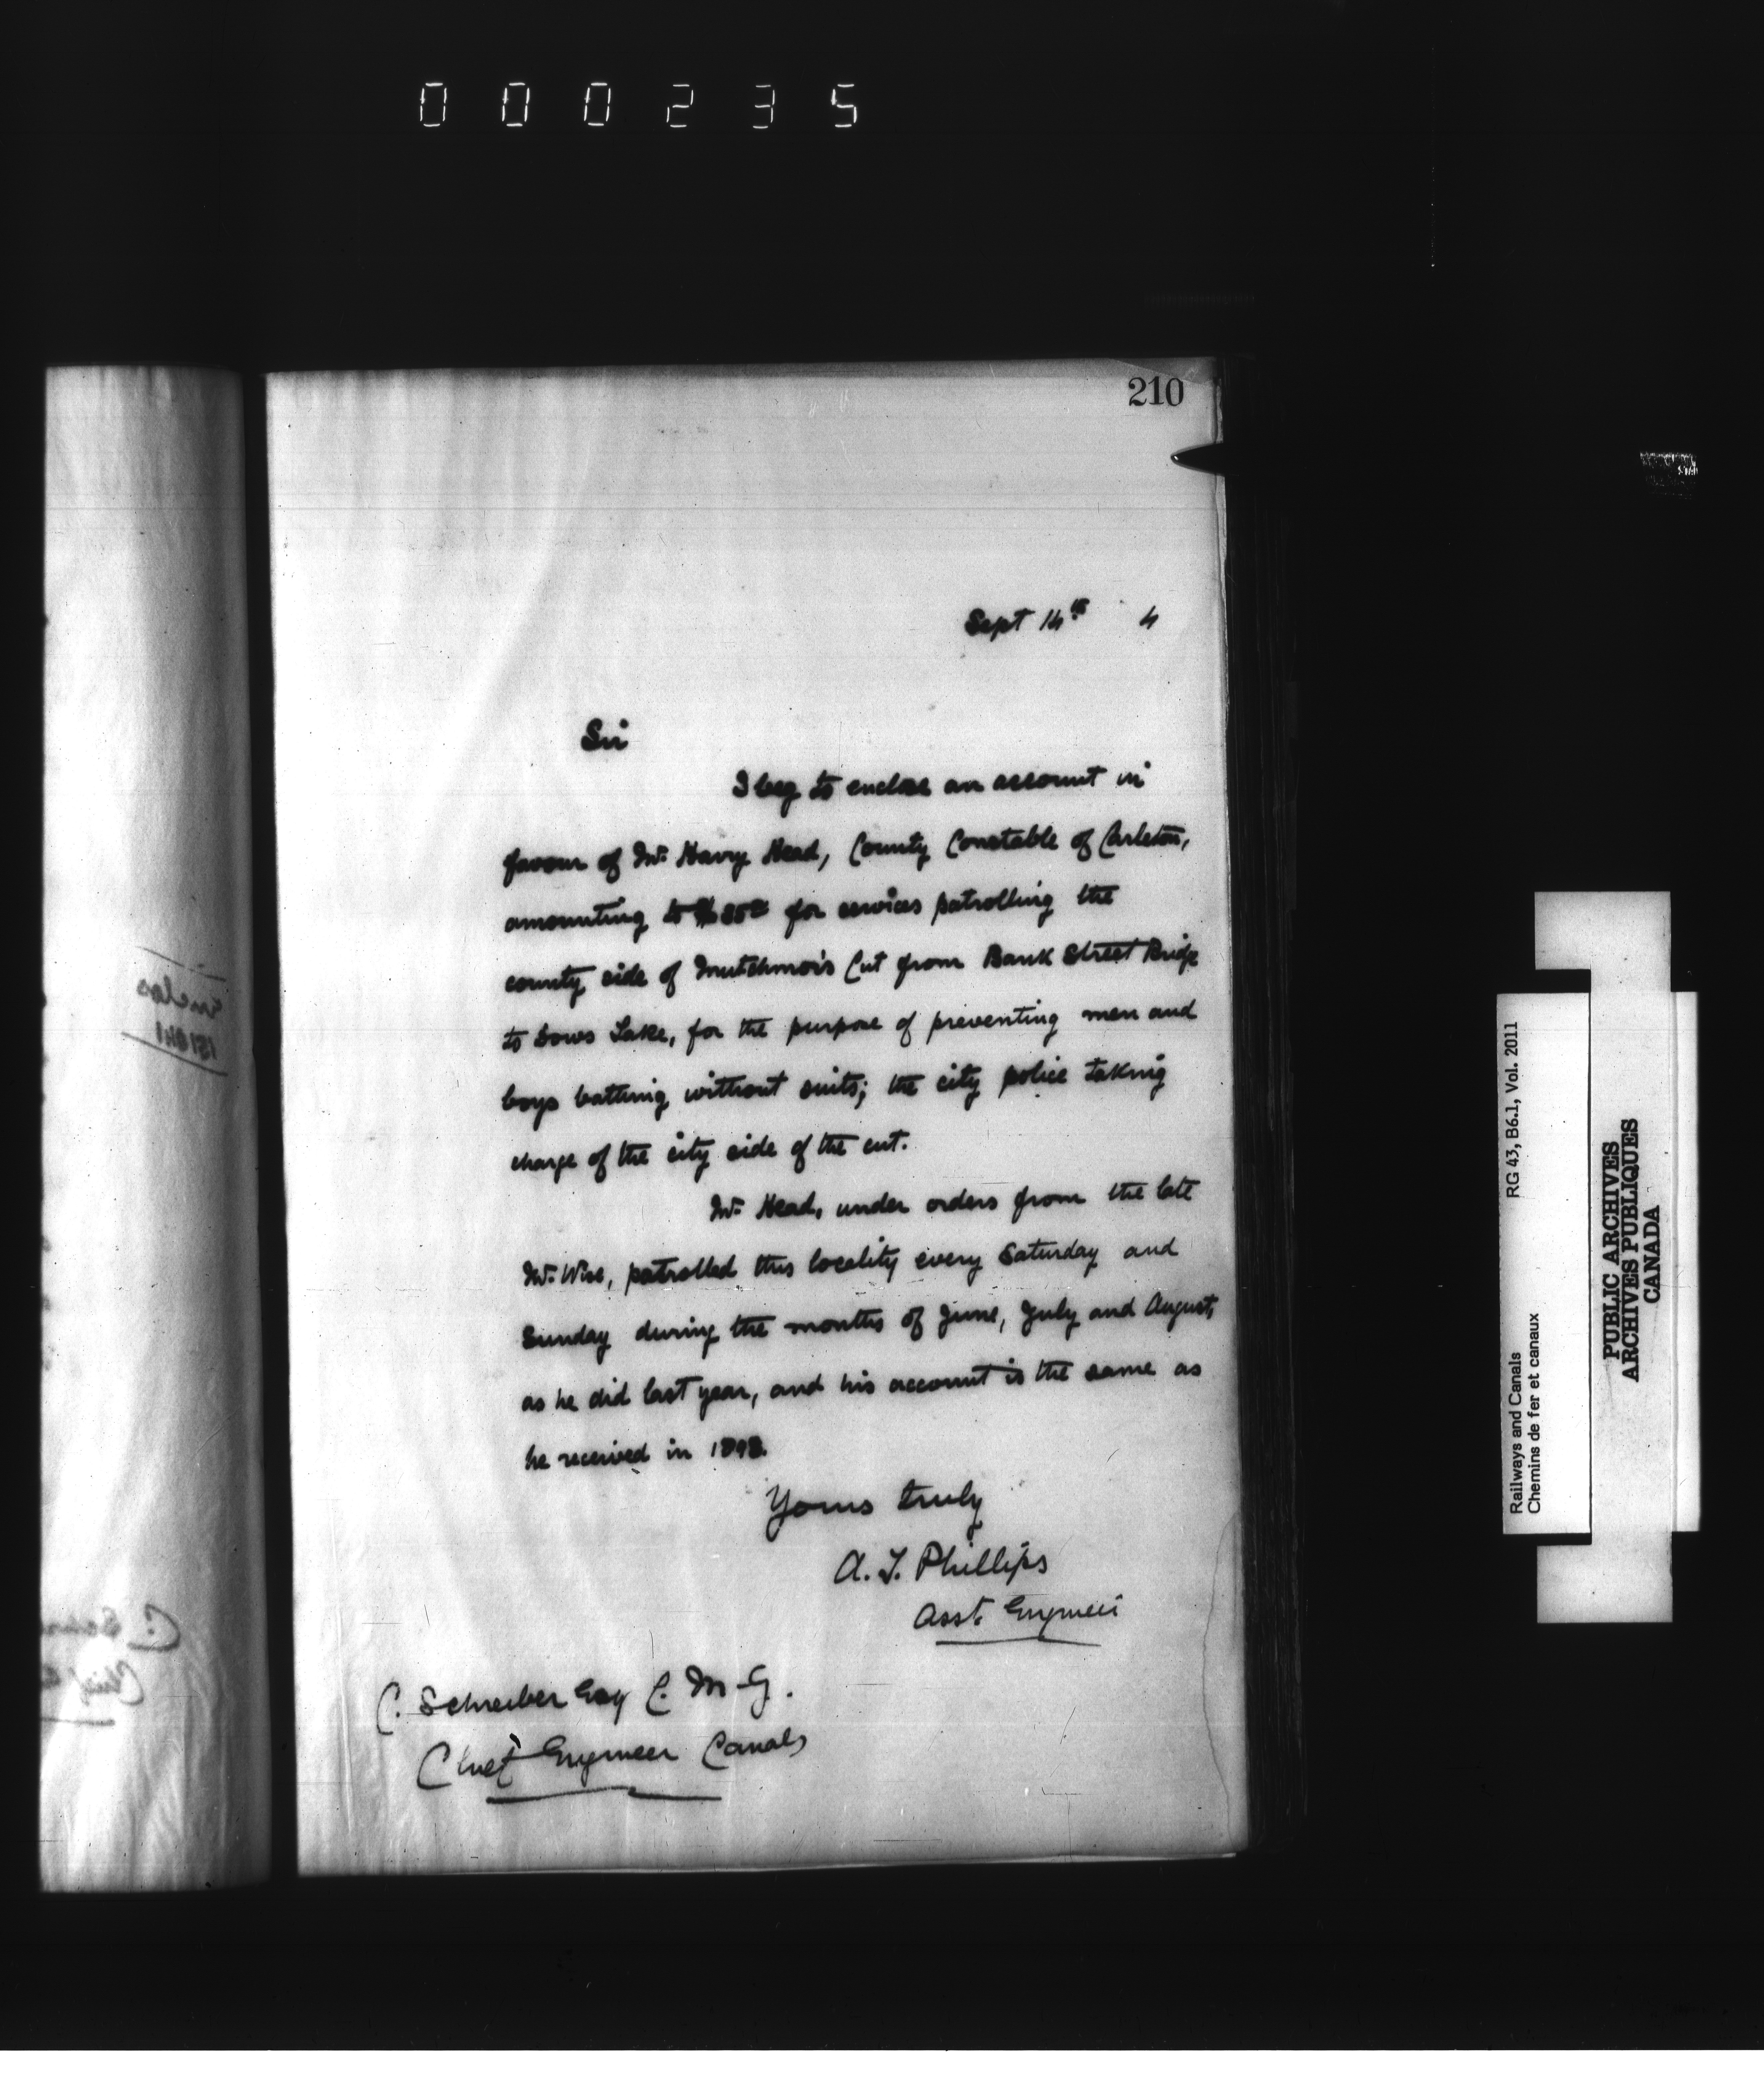 000235
210
Sept 14th 4
Sir
I beg to enclose an account in
favour of Mr. Harry Head, County Constable of Carleton,
amounting to for services patrolling the
county side of Mutchmor's Cut from Bank Street Bridge
to Dows Lake, for the purpose of preventing men and
boys bathing without suits; the city police taking
charge of the city side of the cut.
Mr. Head, under orders from the late
Mr. Wise, patrolled this locality every Saturday and
Sunday during the months of June, July and August,
as he did last year, and his account is the same as
he received in 1893.
Yours truly
A. T. Phillips
Asst. Engineer
C. Schreiber Esq C. M. G.
Chief Engineer Canals
Railways and Canals RG 43, B6.1, Vol. 2011
Chemins de fer et canaux
PUBLIC ARCHIVES
ARCHIVES PUBLIQUES
CANADA